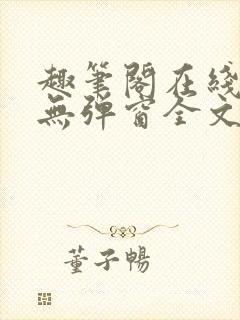 趣筆閣在綫
無彈窗全文
董子暢